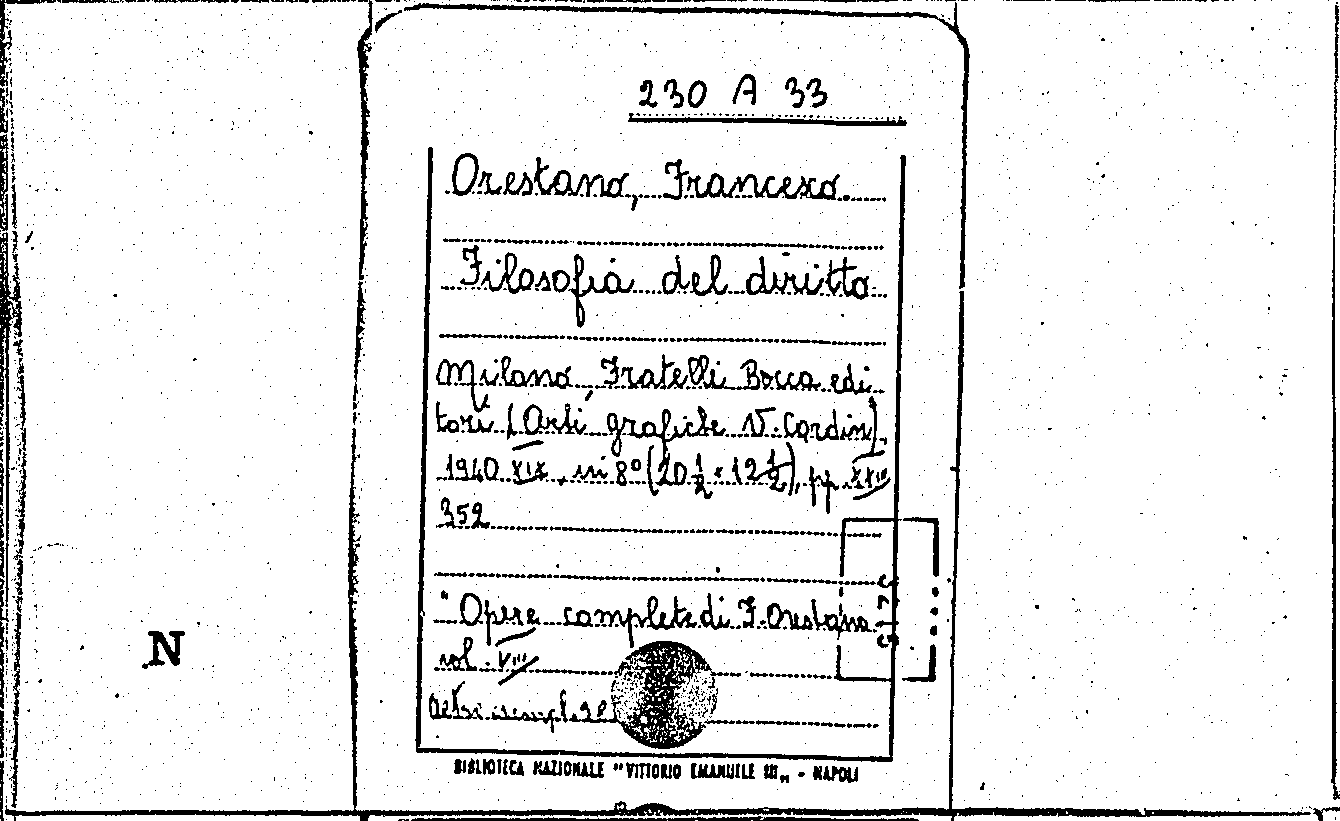 230 A 33
Orestano, Francesco.
Filosofia del diritto
Milano, Fratelli Bocca edi
tori (Arti grafiche V. Cardin),
1940 XIX, in 8° (20 1/2 × 12 1/2), pp. XXIII
352
"Opere complete di F. Orestano
vol. VIII
N
BIBLIOTECA NAZIONALE "VITTORIO EMANUELE III" - NAPOLI